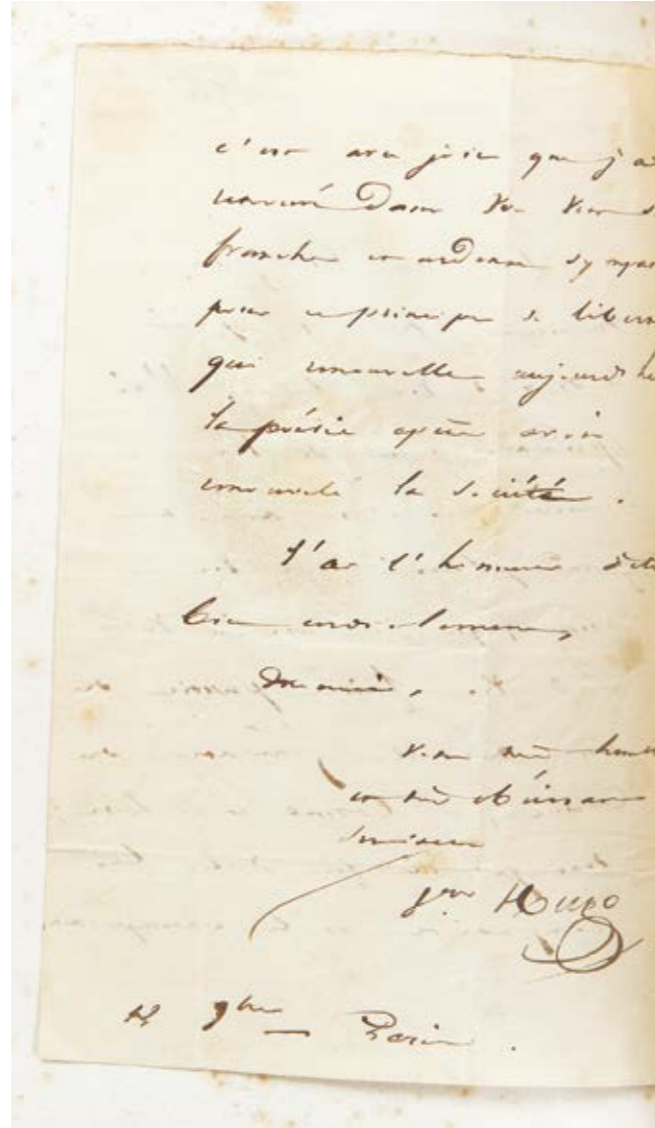 c'est avec joie que j'a
retrouvé dans vos vers
franche et ardente sympa
pour ce principe de liberté
qui renouvelle aujourd'hu
la poésie après avoir
renouvelé la société.
J'ai l'honneur d'être
bien cordialement,
Monsieur,
Votre très humb
et très obéissant
serviteur
Vor Hugo
9bre Paris.